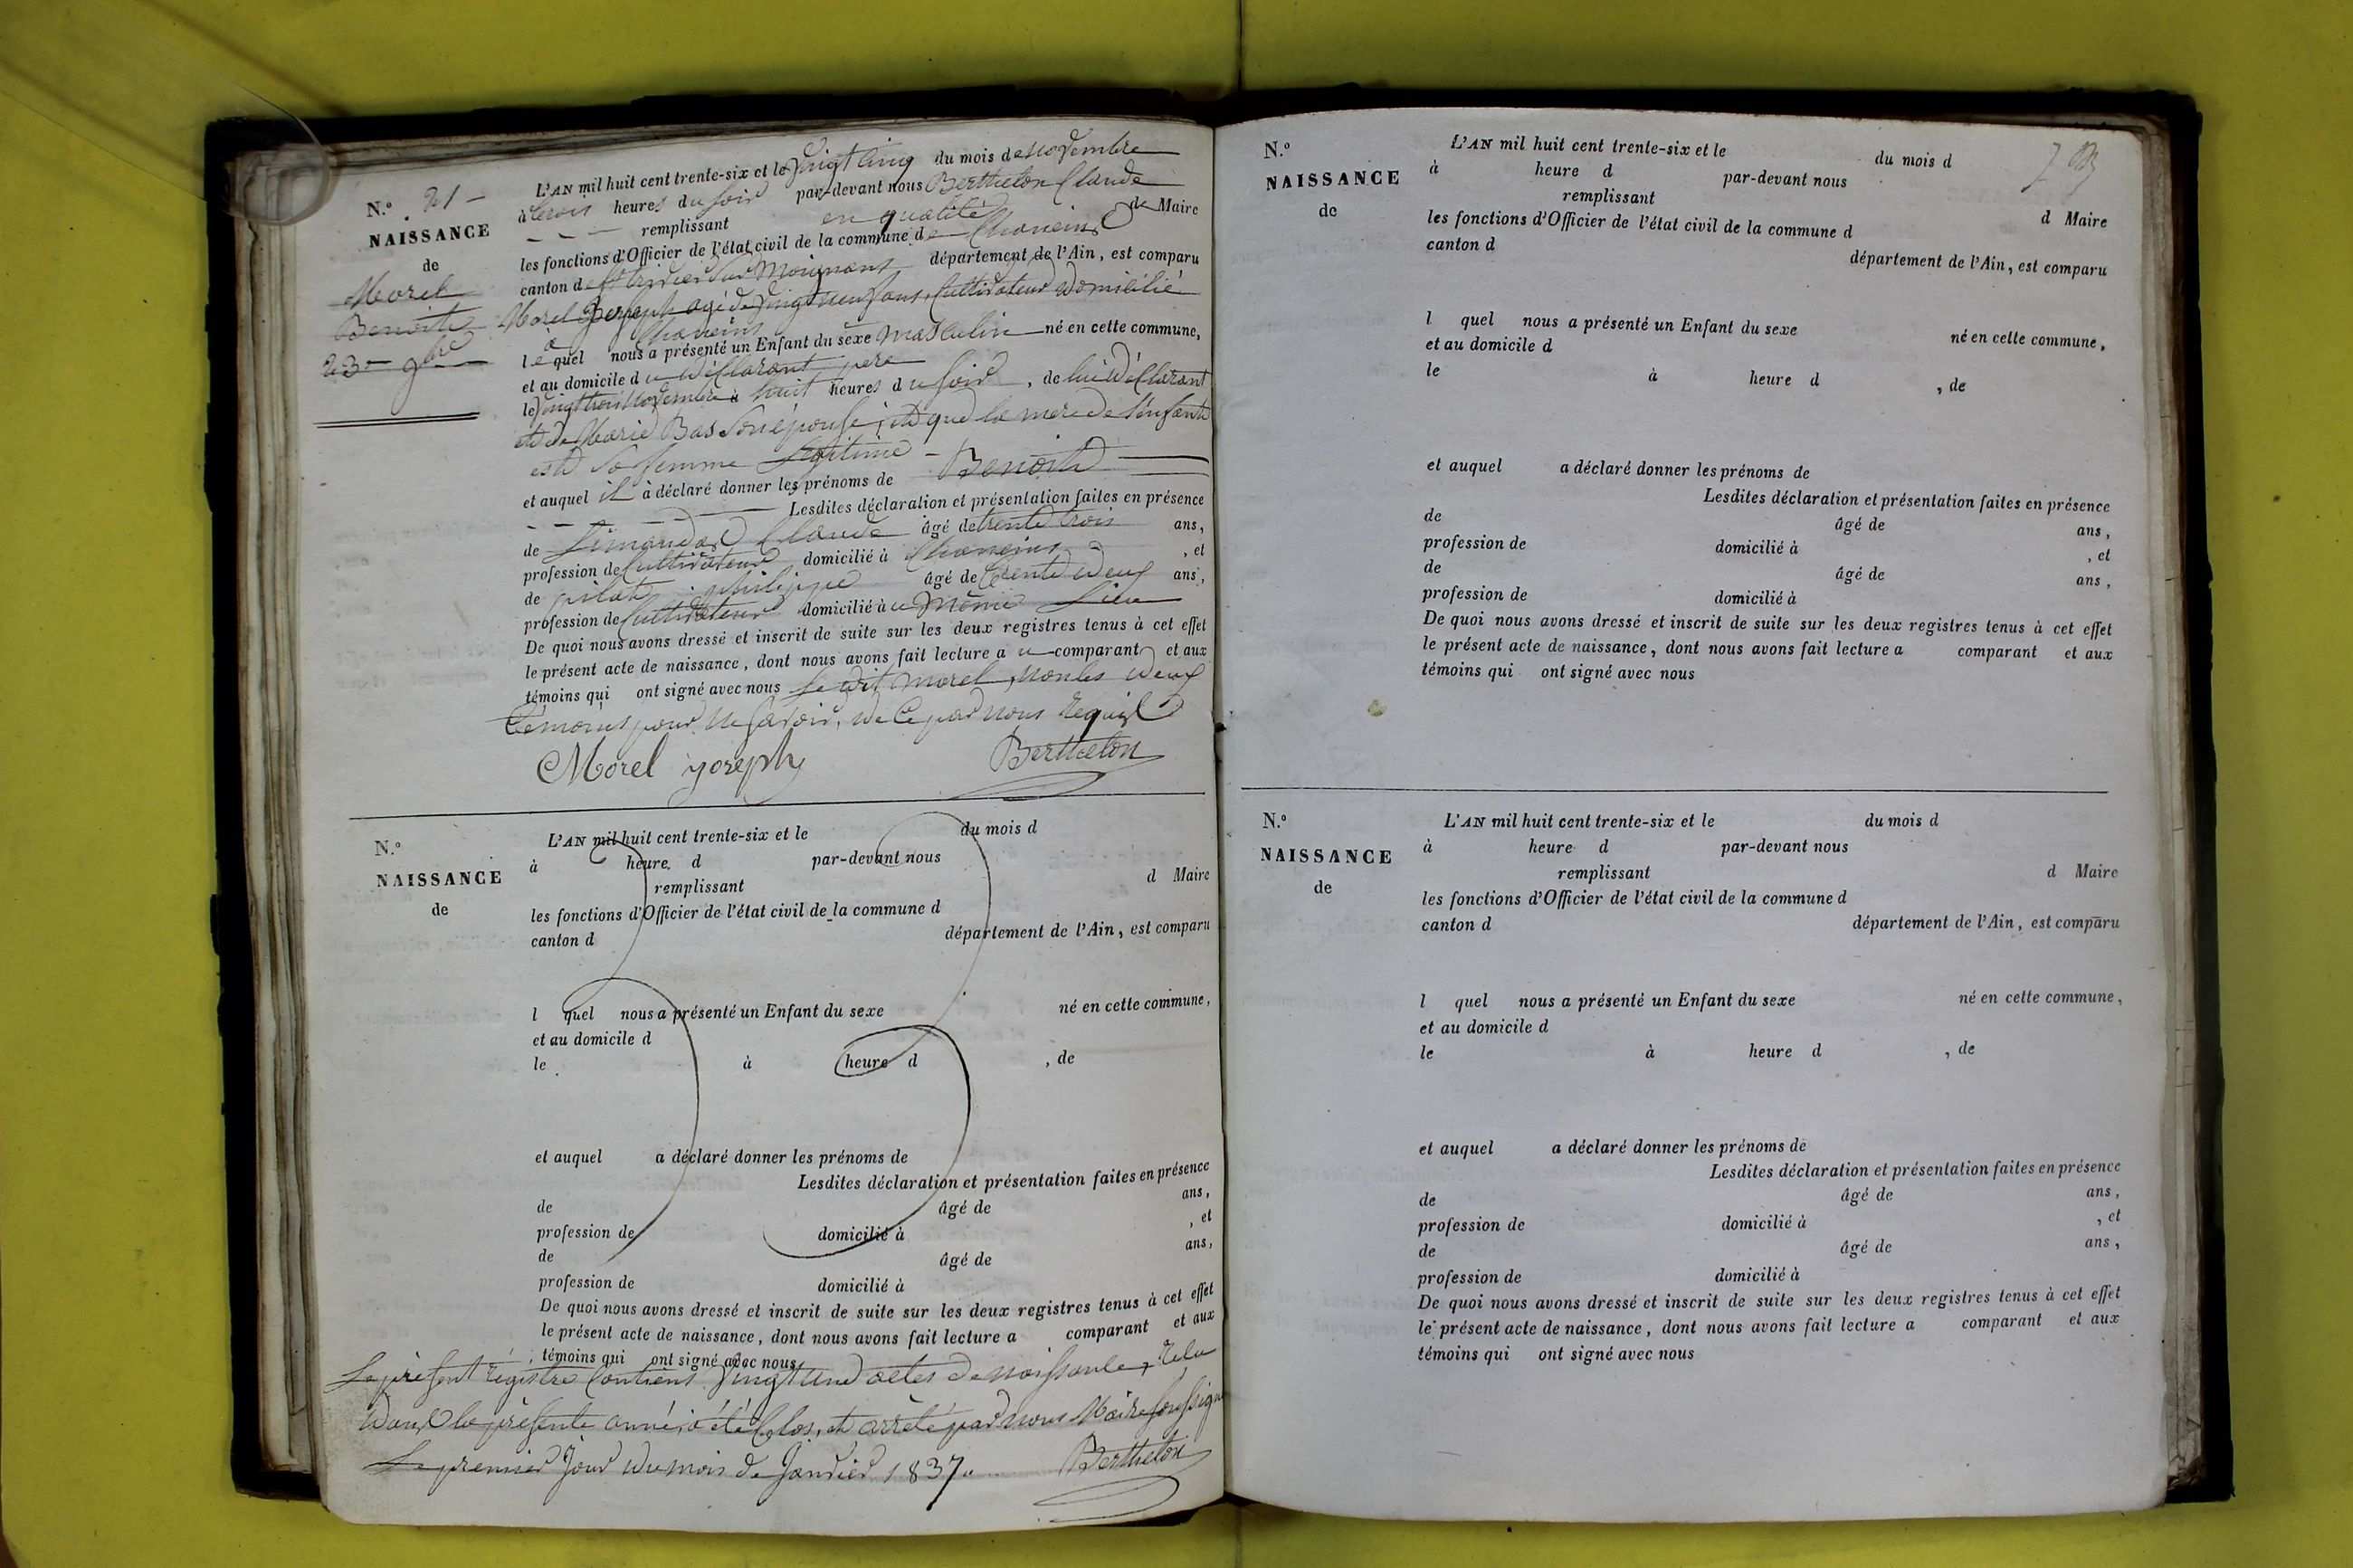 N.° 21 –
NAISSANCE
de
Morel
Benoit
23 – 9bre
L'AN mil huit cent trente-six et le vingt cinq du mois de novembre
à trois heures du soir par-devant nous Berthelon Claude
remplissant en qualité de Maire
les fonctions d'Officier de l'état civil de la commune de Chaneins
canton de St trivier sur Moignans département de l'Ain, est comparu
Morel Joseph agé de vingt neuf ans, Cultivateur domicilié
à Chaneins
lequel nous a présenté un Enfant du sexe masculin né en cette commune,
et au domicile du déclarant père
le vingt trois novembre à huit heures du soir, de lui déclarant
et de Marie Bas son épouse, et que la mere de l'enfant
est sa femme Légitime –
et auquel il à déclaré donner les prénoms de Benoit
Lesdites déclaration et présentation faites en présence
de Limandas Claude âgé de trente trois ans,
profession de Cultivateur domicilié à Chaneins, et
de pilat philippe âgé de trente deux ans,
profession de Cultivateur domicilié à u même Lieu
De quoi nous avons dressé et inscrit de suite sur les deux registres tenus à cet effet
le présent acte de naissance, dont nous avons fait lecture a u comparant et aux
témoins qui ont signé avec nous Le dit morel, non les deux
témoins pour ne savoir, de ce par nous requis
Morel joseph Berthelon
N.°
NAISSANCE
de
L'AN mil huit cent trente-six et le du mois d
à heure d par-devant nous
remplissant d Maire
les fonctions d'Officier de l'état civil de la commune d
canton d département de l'Ain, est comparu
l quel nous a présenté un Enfant du sexe né en cette commune,
et au domicile d
le à heure d , de
et auquel a déclaré donner les prénoms de
Lesdites déclaration et présentation faites en présence
de âgé de ans,
profession de domicilié à , et
de âgé de ans,
profession de domicilié à
De quoi nous avons dressé et inscrit de suite sur les deux registres tenus à cet effet
le présent acte de naissance, dont nous avons fait lecture a comparant et aux
témoins qui ont signé avec nous
Le présent régistre Contient vingt une actes de naissance,
dans la présente année, à été Clos, et arrêté par nous Maire soussigné
Le premier Jour du mois de Janvier 1837. Berthelon
N.°
NAISSANCE
de
L'AN mil huit cent trente-six et le du mois d
à heure d par-devant nous
remplissant d Maire
les fonctions d'Officier de l'état civil de la commune d
canton d département de l'Ain, est comparu
l quel nous a présenté un Enfant du sexe né en cette commune,
et au domicile d
le à heure d , de
et auquel a déclaré donner les prénoms de
Lesdites déclaration et présentation faites en présence
de âgé de ans,
profession de domicilié à , et
de âgé de ans,
profession de domicilié à
De quoi nous avons dressé et inscrit de suite sur les deux registres tenus à cet effet
le présent acte de naissance, dont nous avons fait lecture a comparant et aux
témoins qui ont signé avec nous
N.°
NAISSANCE
de
L'AN mil huit cent trente-six et le du mois d
à heure d par-devant nous
remplissant d Maire
les fonctions d'Officier de l'état civil de la commune d
canton d département de l'Ain, est comparu
l quel nous a présenté un Enfant du sexe né en cette commune,
et au domicile d
le à heure d , de
et auquel a déclaré donner les prénoms de
Lesdites déclaration et présentation faites en présence
de âgé de ans,
profession de domicilié à , et
de âgé de ans,
profession de domicilié à
De quoi nous avons dressé et inscrit de suite sur les deux registres tenus à cet effet
le présent acte de naissance, dont nous avons fait lecture a comparant et aux
témoins qui ont signé avec nous